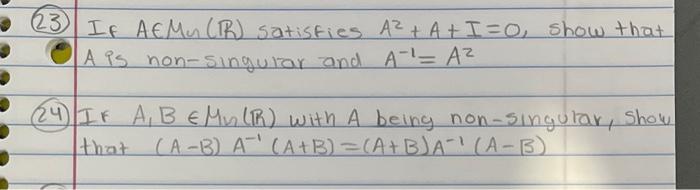 23 If A∈Mn(ℝ) satisfies A² + A + I = 0, show that
A is non-singular and A⁻¹ = A²
24 If A, B ∈ Mn(ℝ) with A being non-singular, show
that (A-B) A⁻¹ (A+B) = (A+B)A⁻¹ (A-B)